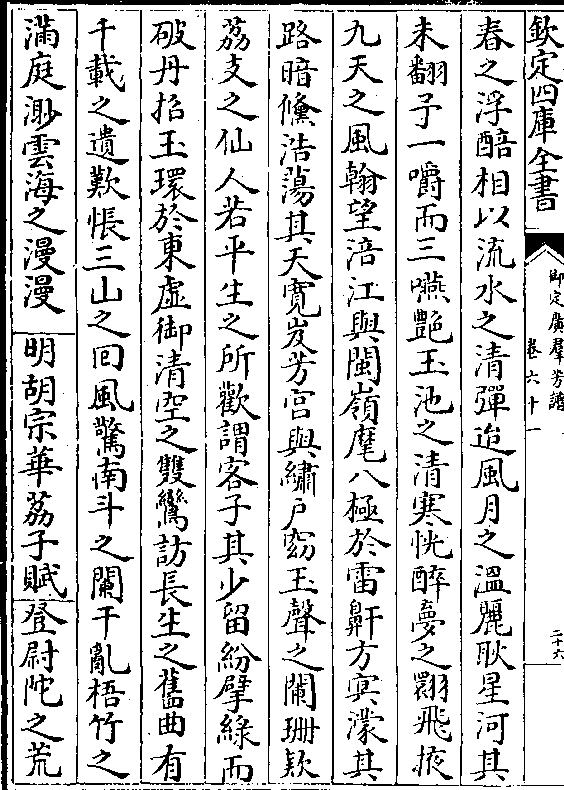 欽定四庫全書
御定廣群芳譜
卷六十一
二十六
春之浮醅相以流水之清彈迨風月之溫麗耿星河其
未翻予一嚼而三嚥艷玉池之清寒恍醉夢之翾飛掖
九天之風翰望涪江與閩嶺麾八極於雷鼾方冥濛其
路暗儵浩蕩其天寛岌芳宫與繡戶窈玉聲之闌珊欵
荔支之仙人若平生之所歡謂客子其少留紛擘綠而
破丹招玉環於東虛御清空之雙鸞訪長生之舊曲有
千載之遺歎悵三山之囘風驚南斗之闌干亂梧竹之
滿庭渺雲海之漫漫 明胡宗華荔子賦 登尉陀之荒